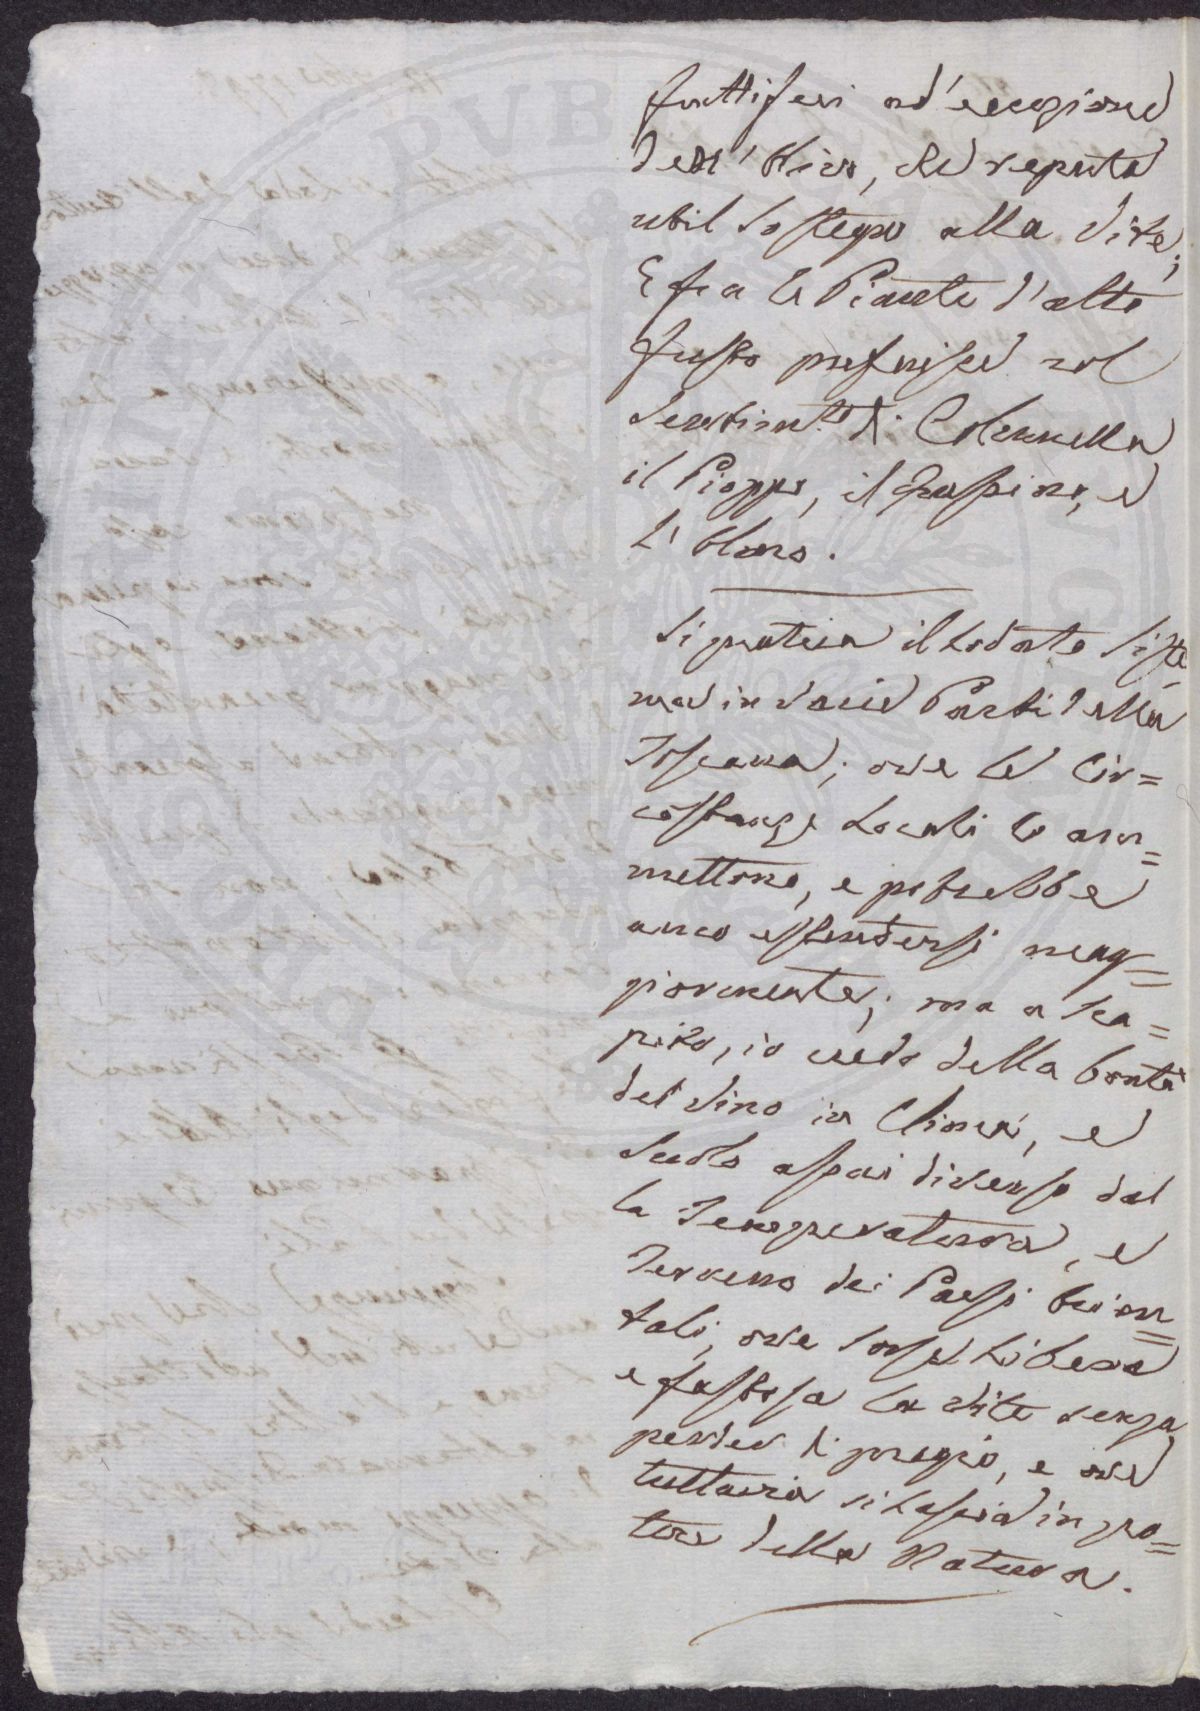 fruttiferi ad'eccezione
dell'Olivo, che reputa
util sostegno alla Vite;
E fra le Piante d'alto
fusto preferisce col
sentim.to di Columella
il Pioppo, il Frassino, e
l'Olmo.
Si pratica il lodato Siste
ma in varie Parti della
Toscana; ove le Cir=
costanze locali lo am=
mettono, e potrebbe
anco estendersi mag=
giormente; ma a sca=
pito, io credo della bontà
del Vino in Clima, e
Suolo assai diverso dal
la Temperatura, e
Terreno dei Paesi Orien=
tali, ove sorse libera
e fastosa la Vite senza
perder di pregio, e ove
tuttavia si lascia in po=
tere della Natura.